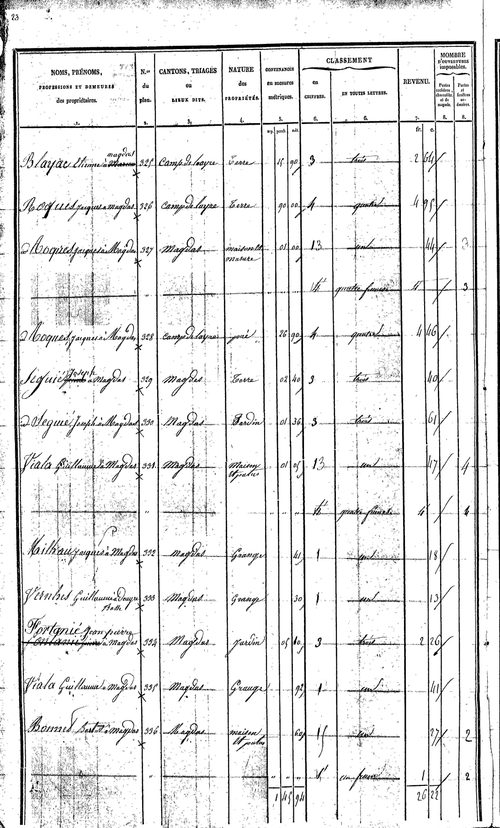 23
NOMS, PRÉNOMS,
PROFESSIONS ET DEMEURES
des propriétaires.
N.os du plan.
CANTONS, TRIAGES
OU
LIEUX DITS.
NATURE
des
PROPRIÉTÉS.
CONTENANCES
en mesures
métriques.
CLASSEMENT
en CHIFFRES.
EN TOUTES LETTRES.
REVENU.
NOMBRE
D'OUVERTURES
imposables.
1. 2. 3. 4. 5. 6. 6. 7. 8. 8.
arp. perch. mèt. fr. c.
Blayac Etienne à magdas 325 Camp de layre Terre 15 90 3 trois 2 64
Roques Jacques à magdas 326 Camp de layre Terre 90 00 4 quatre 4 95
Roques Jacques à Magdas 327 Magdas maison et masure 01 00 13 un 44 3
" " 4e quatre 4 3
Roques Jacques à Magdas 328 Camp de layre 26 90 4 quatre 4 46
Seguie Joseph à Magdas 329 Magdas Terre 02 40 3 trois 40
Seguie Joseph à Magdas 330 Magdas Jardin 01 36 3 trois 61
Viala Guillaume à Magdas 331 Magdas Maison et patus 01 05 13 un 47 4
" " quatre 4 4
Milhau Jacques à Magdas 332 Magdas Grange 41 1 un 18
Vernhes Guillaume à 333 Magdas Grange 30 1 un 13
Fortanié Jean pierre à Magdas 334 Magdas Jardin 05 10 3 trois 2 26
Viala Guillaume à Magdas 335 Magdas Grange 92 1 un 41
Bonnet à Magdas 336 Magdas maison et patus 60 15 un 27 2
" " " " " un 1 2
1 45 94 26 22